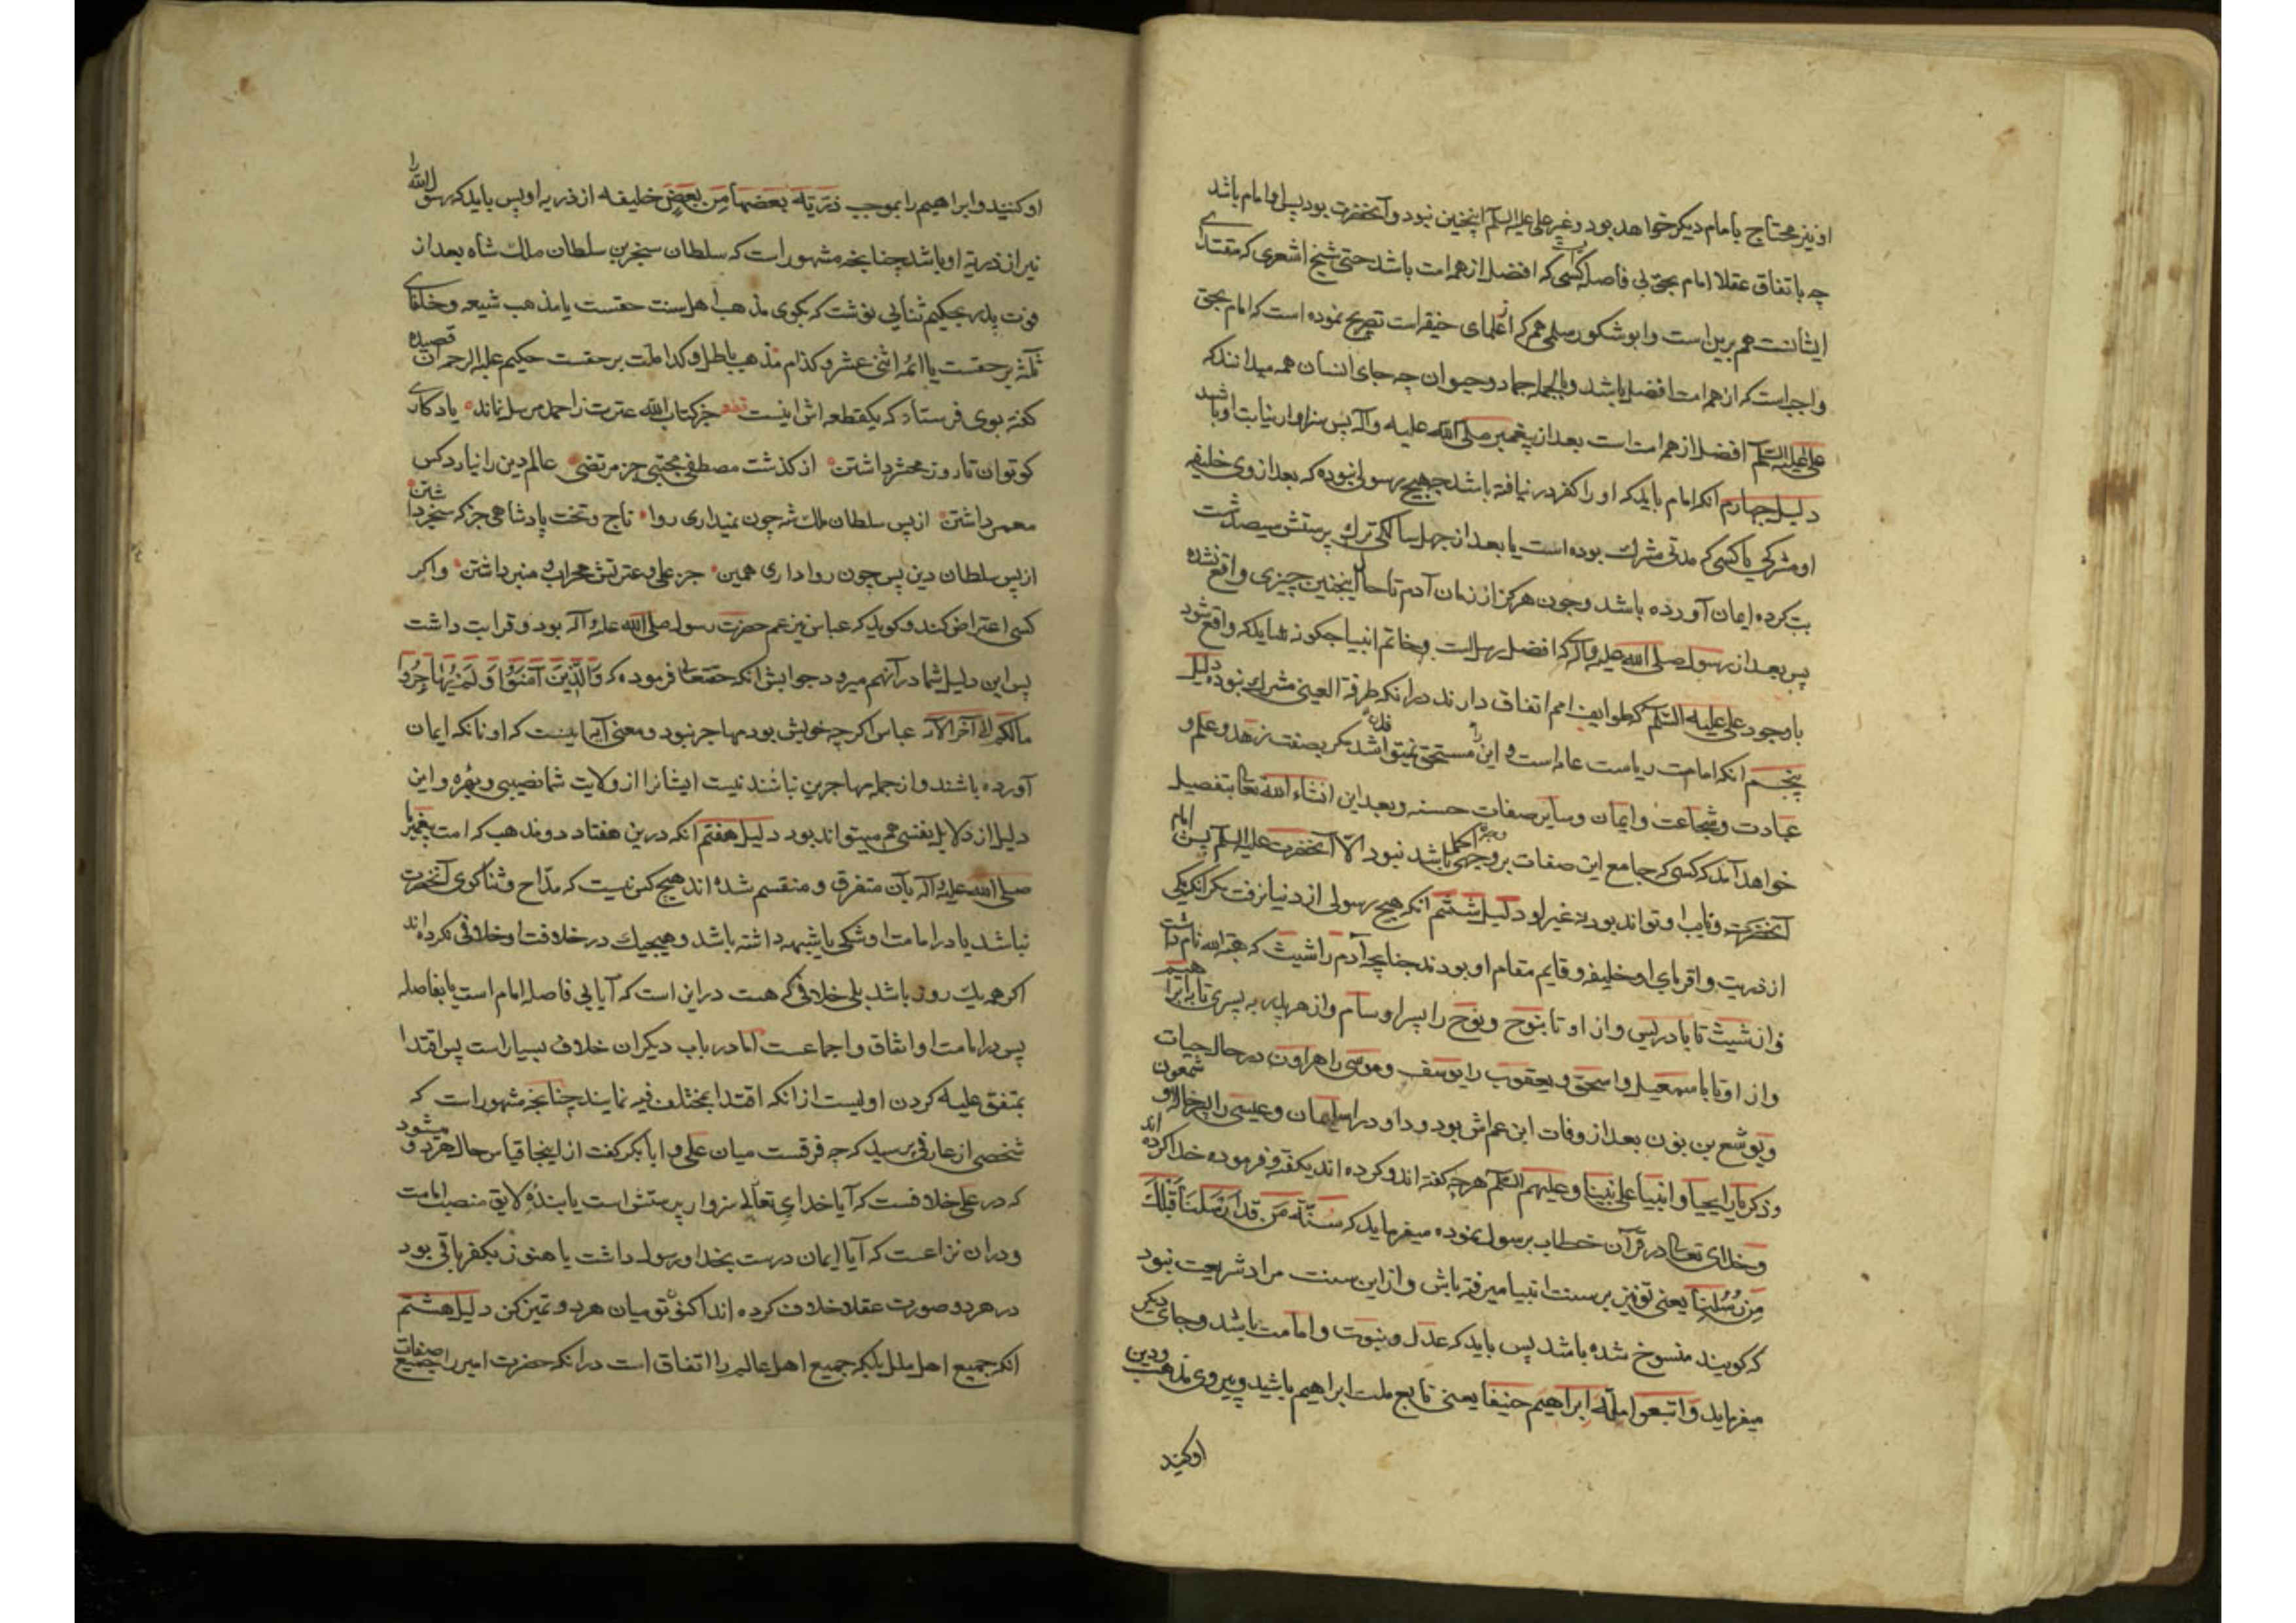 او نیز محتاج بامام دیکر خواهد بود و غیر علی علیه السلم اینچنین نبود و آنحضرت بود پس او امام باشد
چه باتفاق عقلا امام بحق بی فاصله کسی که افضل از همه امت باشد حتی شیخ اشعری که مقتدای
ایشانست هم برین است و ابو شکور سلمی هم که از علمای حنیفه است تصریح نموده است که امام بحق
واجبست که از همه امت افضل باشد و بالجمله جماد و حیوان چه جای انسان همه میدانند که
علی علیه السلم افضل از همه امت است بعد از پیغمبر صلی الله علیه وآله پس سزاوار نیابت او باشد
دلیل چهارم انکه امام باید که او را کفر در نیافته باشد چه هیچ رسولی نبوده که بعد از وی خلیفه
او مشرکی یا کسی که مدتی مشرک بوده است یا بعد از چهل سالکی ترک پرستش سیصد شصت
بت کرده ایمان آورده باشد و چون هرکز از زمان آدم تا حال اینچنین چیزی واقع نشده
پس بعد از رسول صلی الله علیه وآله که افضل رسل است و خاتم انبیا چکونه شاید که واقع شود
با وجود علی علیه السلم که طوایف امم اتفاق دارند در انکه طرفة العینی مشرک نبوده دلیل
پنجم انکه امامت ریاست عامه است و این را مستحق نمیتواند شد مکر بصفت زهد و علم و
عبادت و شجاعت و ایمان و سایر صفات حسنه و بعد این انشاء الله تعالی بتفصیل
خواهد آمد که کسی که جامع این صفات بر وجه اکمل باشد نبود الا آنحضرت علیه السلم پس امام
آنحضرت و نایب او تواند بود نه غیر او دلیل ششم انکه هیچ رسولی از دنیا نرفت مکر انکه یکی
از ذریت و اقربای او خلیفه و قایم مقام او بودند چنانچه آدم را شیث که هبة الله نام داشت
و از شیث تا بادریس و از او تا بنوح و نوح را پسر او سام و از هر پدر به پسری تا بابراهیم
و از او تا باسمعیل و اسحق و یعقوب را یوسف و موسی را هرون در حال حیات
و یوشع بن نون بعد از وفات ابن عمش بود و داود را سلیمان و عیسی را پسر خاله او شمعون
و ذکریا را یحیی و انبیا علی نبینا و علیهم السلم هرچه کفته اند و کرده اند بکفته و فرموده خدا کرده اند
و خدای تعالی در قرآن خطاب برسول نموده میفرماید که سنة من قد ارسلنا قبلک
من رسلنا یعنی تو نیز بر سنت انبیا میرفته باش و از این سنت مراد شریعت نبود
که کویند منسوخ شده باشد پس باید که عدل و نبوت و امامت باشد و جای دیکر
میفرماید واتبعوا ملة ابراهیم حنیفا یعنی تابع ملت ابراهیم باشید و پیروی مذهب و دین
او کنید
او کنید و ابراهیم را بموجب ذریة بعضها من بعض خلیفه از ذریه او پس باید که رسول الله را
نیز از ذریه او باشد چنانچه مشهور است که سلطان سنجر بن سلطان ملک شاه بعد از
فوت پدر بحکیم ثنائی نوشت که بکوی مذهب اهل سنت حقست یا مذهب شیعه و خلفای
ثلثه بر حقست یا ائمه اثنی عشر و کدام مذهب باطل و کدام ملت بر حقست حکیم علیه الرحمه آن قصیده
کفته بوی فرستاد که یکقطعه اش اینست جز کتاب الله عترت ز احمد مرسل نماند یادکاری
کو توان تا روز محشر داشتن از کذشت مصطفی مجتبی جز مرتضی عالم دین را نیارد کس
معمر داشتن از پس سلطان ملک شه چون نمیداری روا تاج و تخت پادشاهی جز که سنجر داشتن
از پس سلطان دین پس چون روا داری همین جز علی و عترتش محراب و منبر داشتن و اکر
کسی اعتراض کند و کوید که عباس نیز عم حضرت رسول صلی الله علیه وآله بود و قرابت داشت
پس این دلیل شما در آنهم میرود جوابش انکه حقتعالی فرموده که والذین آمنوا ولم یهاجروا
مالکم الی آخر الآیه عباس اکرچه خویش بود مهاجر نبود و معنی آیه اینست که اونانکه ایمان
آورده باشند و از جمله مهاجرین نباشند نیست ایشانرا از ولایت شما نصیبی و بهره و این
دلیل از دلایل نفسی هم میتواند بود دلیل هفتم انکه درین هفتاد دو مذهب که امت پیغمبر ما
صلی الله علیه وآله بآن متفرق و منقسم شده اند هیچ کس نیست که مداح و ثنا کوی آنحضرت
نباشد یا در امامت او شکی یا شبهه داشته باشد و هیچیک در خلافت او خلافی نکرده اند
اکر همه یک روز باشد بلی خلافی که هست در این است که آیا بی فاصله امام است یا بفاصله
پس در امامت او اتفاق و اجماعست اما در باب دیکران خلاف بسیار است پس اقتدا
بمتفق علیه کردن اولیست از انکه اقتدا بمختلف فیه نمایند چنانچه مشهور است که
شخصی از عارفی پرسید که چه فرقست میان علی و ابابکر کفت از اینجا قیاس حال هردو میشود
که در علی خلافست که آیا خدای تعالی سزوار پرستش است یا بنده و لایق منصب امامت
و دران نزاعست که آیا ایمان درست بخدا و رسول داشت یا هنوز بکفر باقی بود
در هر دو صورت عقلا خلاف کرده اند اکنون تو میان هر دو تمیز کن دلیل هشتم
انکه جمیع اهل ملل بلکه جمیع اهل عالم را اتفاق است در انکه حضرت امیر را جمیع صفات